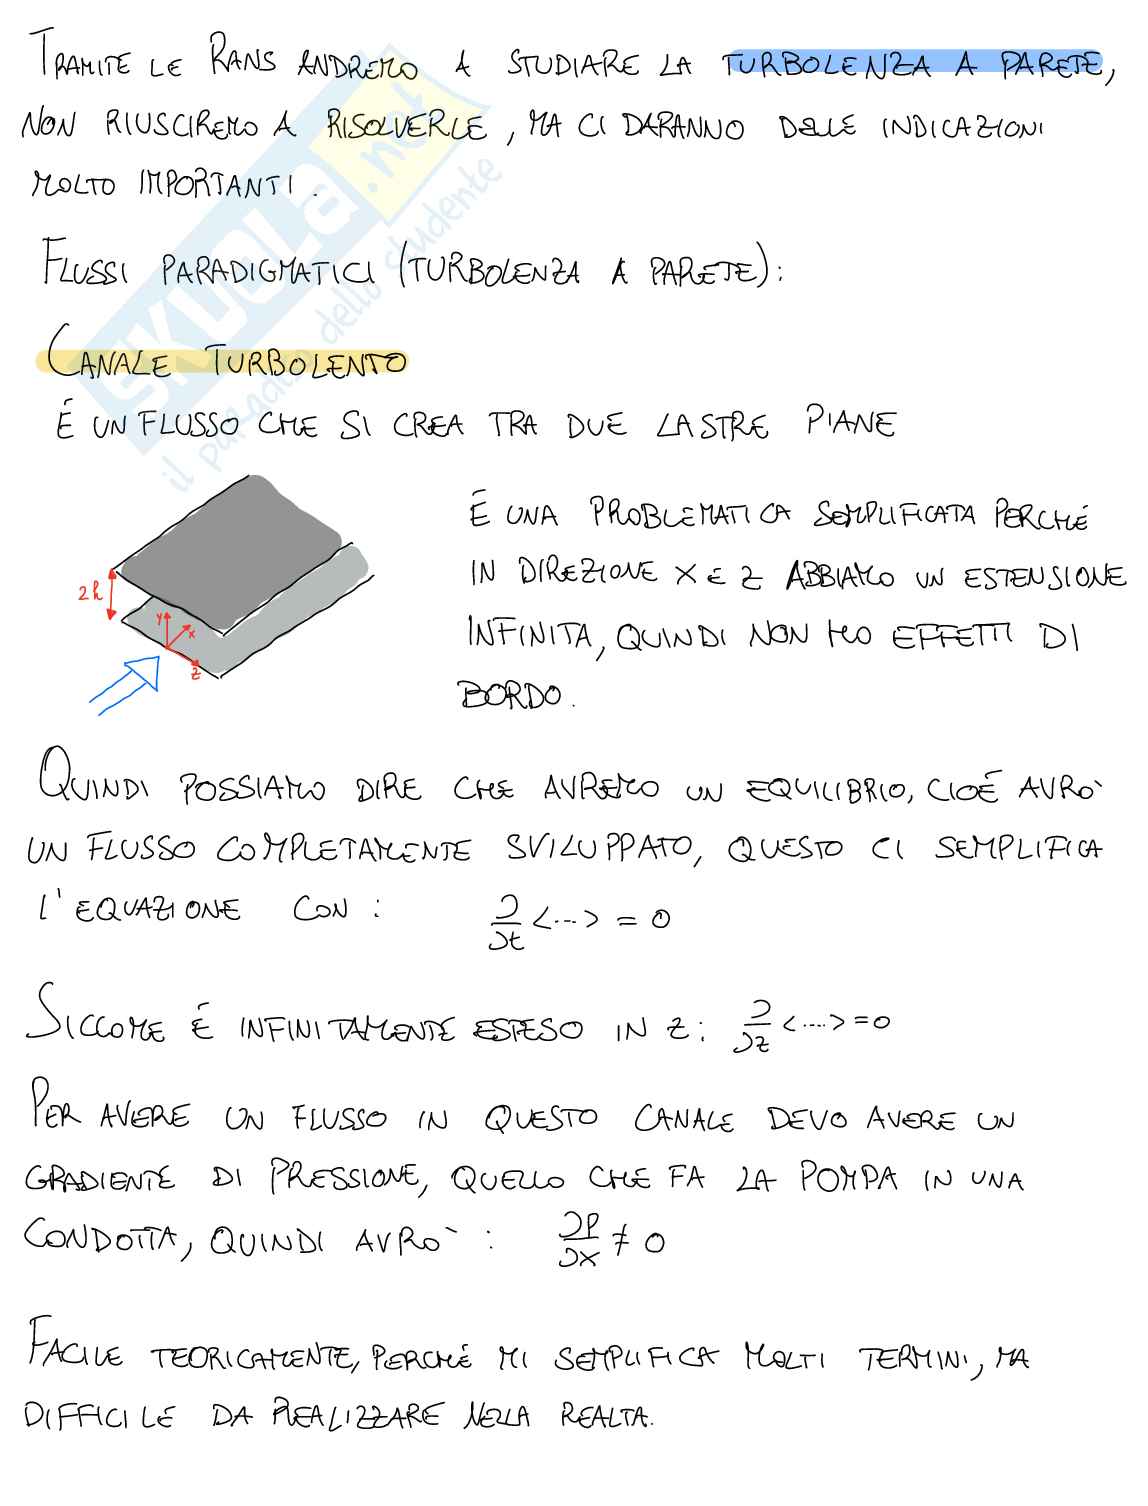 TRAMITE LE RANS ANDREMO A STUDIARE LA TURBOLENZA A PARETE,
NON RIUSCIREMO A RISOLVERLE, MA CI DARANNO DELLE INDICAZIONI
MOLTO IMPORTANTI.
FLUSSI PARADIGMATICI (TURBOLENZA A PARETE):
CANALE TURBOLENTO
É UN FLUSSO CHE SI CREA TRA DUE LASTRE PIANE
É UNA PROBLEMATICA SEMPLIFICATA PERCHÉ
IN DIREZIONE X E Z ABBIAMO UN ESTENSIONE
INFINITA, QUINDI NON HO EFFETTI DI
BORDO.
2h
y
x
z
QUINDI POSSIAMO DIRE CHE AVREMO UN EQUILIBRIO, CIOÉ AVRO`
UN FLUSSO COMPLETAMENTE SVILUPPATO, QUESTO CI SEMPLIFICA
L'EQUAZIONE CON: ∂/∂t <...> = 0
SICCOME É INFINITAMENTE ESTESO IN Z: ∂/∂z <....> = 0
PER AVERE UN FLUSSO IN QUESTO CANALE DEVO AVERE UN
GRADIENTE DI PRESSIONE, QUELLO CHE FA LA POMPA IN UNA
CONDOTTA, QUINDI AVRO` : ∂P/∂x ≠ 0
FACILE TEORICAMENTE, PERCHÉ MI SEMPLIFICA MOLTI TERMINI, MA
DIFFICILE DA REALIZZARE NELLA REALTA.
SKUOLA.net
il paradiso dello studente